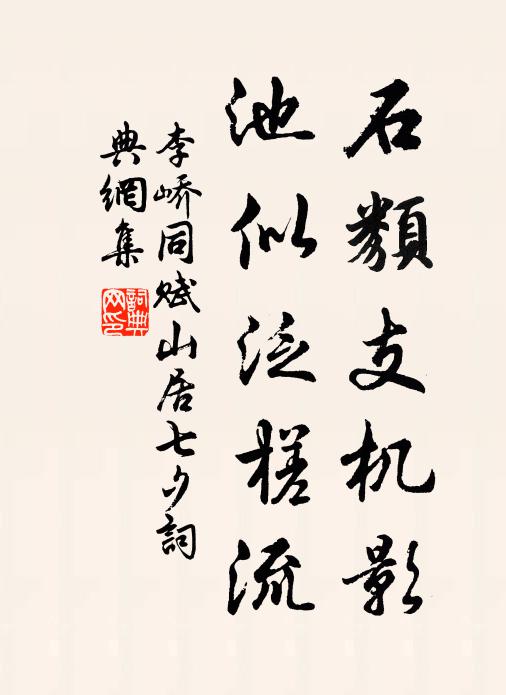 石類支机影
池似泛槎流
李嶠同賦山居七夕詞
典網集
詞典網印